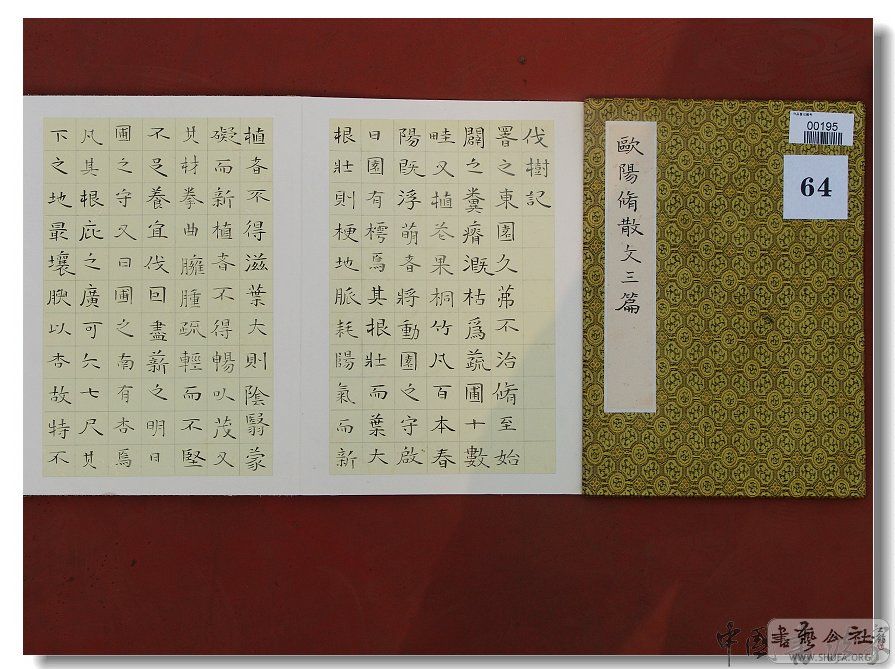 00195
64
歐陽脩散文三篇
伐樹記
署之東園久茀不治脩至始
闢之糞瘠溉枯爲蔬圃十數
畦又植花果桐竹凡百本春
陽既浮萌者將動園之守啟
曰園有樗焉其根壯而葉大
根壯則梗地脈耗陽氣而新
植者不得滋葉大則陰翳蒙
礙而新植者不得暢以茂又
其材拳曲臃腫疏輕而不堅
不足養宜伐因盡薪之明日
圃之守又曰圃之南有杏焉
凡其根庇之廣可六七尺其
下之地最壤腴以杏故特不
中国書藝公社
WWW.SHUFA.ORG